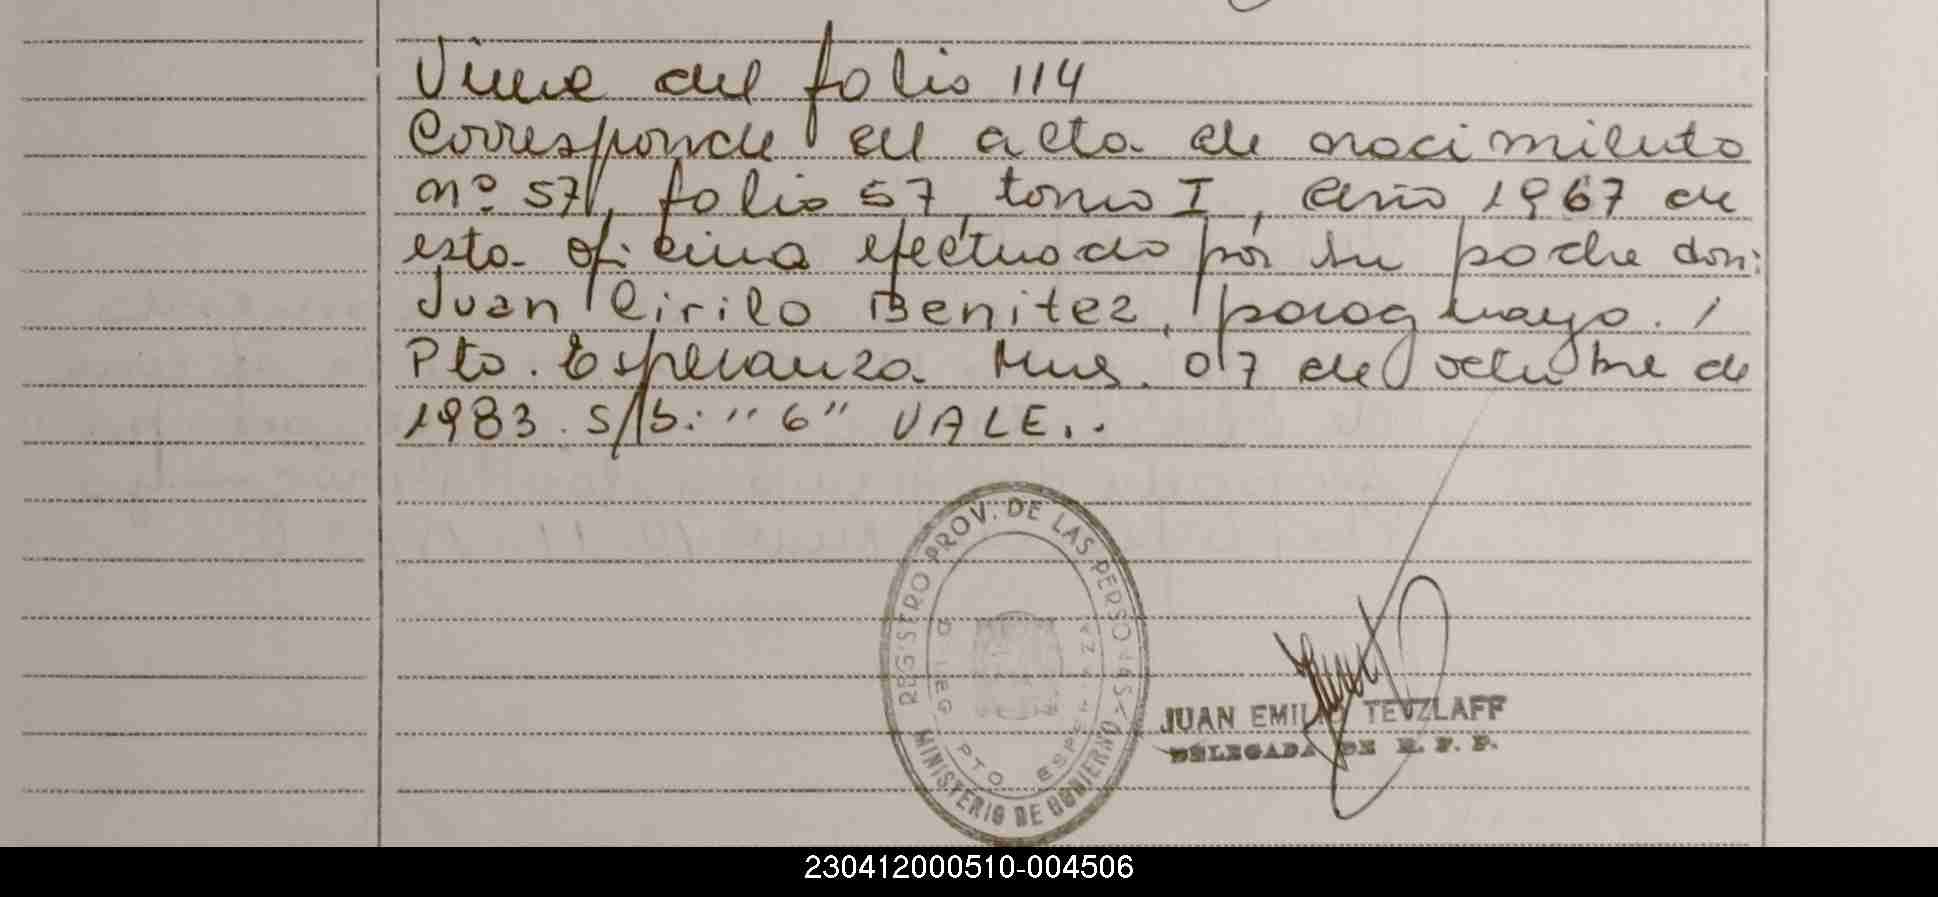 Viene del folio 114
Corresponde al acta de nacimiento
nº 57, folio 57, tomo I, año 1967 de
esta oficina efectuado por su padre don:
Juan Cirilo Benitez, paraguayo. /
Pto. Esperanza Mnes. 07 de octubre de
1983. S/b: "6" VALE..
REGISTRO PROV. DE LAS PERSONAS
DELEG PTO ESPERANZA
MINISTERIO DE GOBIERNO
JUAN EMILIO TEVZLAFF
DELEGADA DE R. P. P.
230412000510-004506